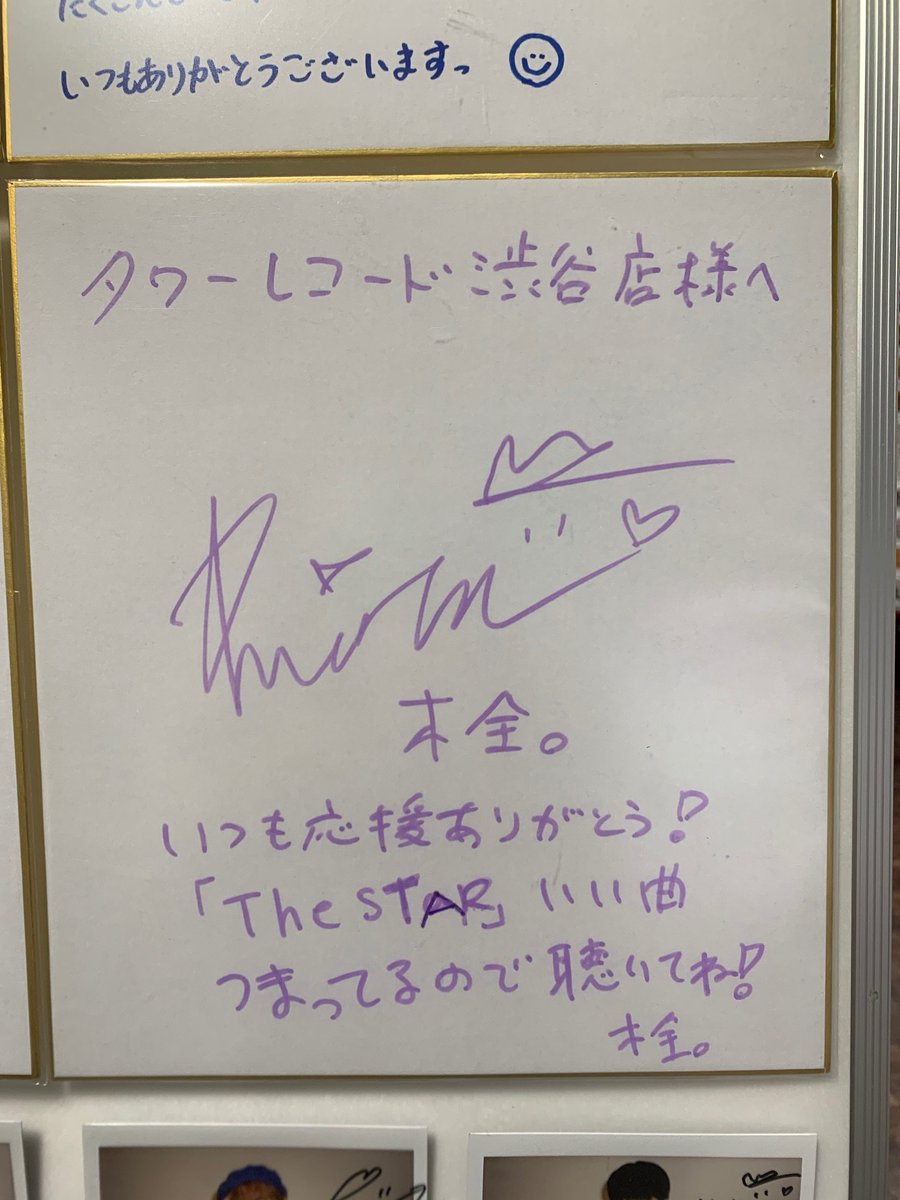 いつもありがとうございますっ
タワーレコード渋谷店様へ
木全。
いつも応援ありがとう!
「The STAR」いい曲
つまってるので聴いてね!
木全。